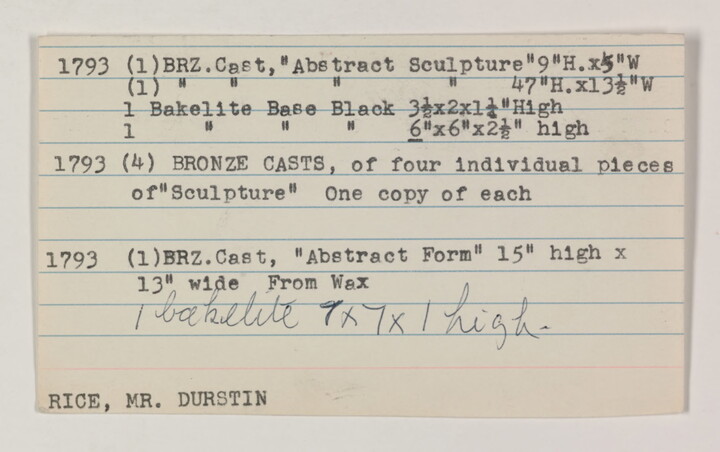 1793 (1)BRZ.Cast,"Abstract Sculpture"9"H.x5"W
(1) " " " " 47"H.x13½"W
1 Bakelite Base Black 3½x2x1¼"High
1 " " " 6"x6"x2½" high
1793 (4) BRONZE CASTS, of four individual pieces
of"Sculpture" One copy of each
1793 (1)BRZ.Cast, "Abstract Form" 15" high x
13" wide From Wax
1 bakelite 7x7x1 high.
RICE, MR. DURSTIN